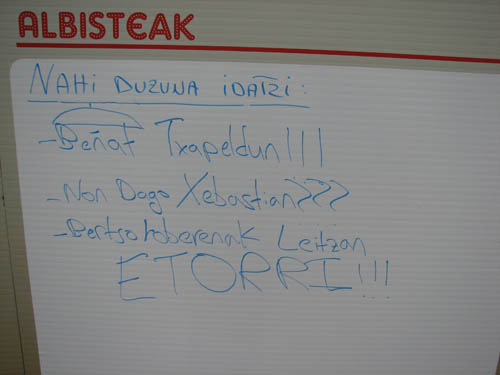 ALBISTEAK
NAHI DUZUNA IDATZI:
- Beñat Txapeldun!!!
- Non Dago Xebastian???
- Bertso hoberenak Leitzan
ETORRI!!!